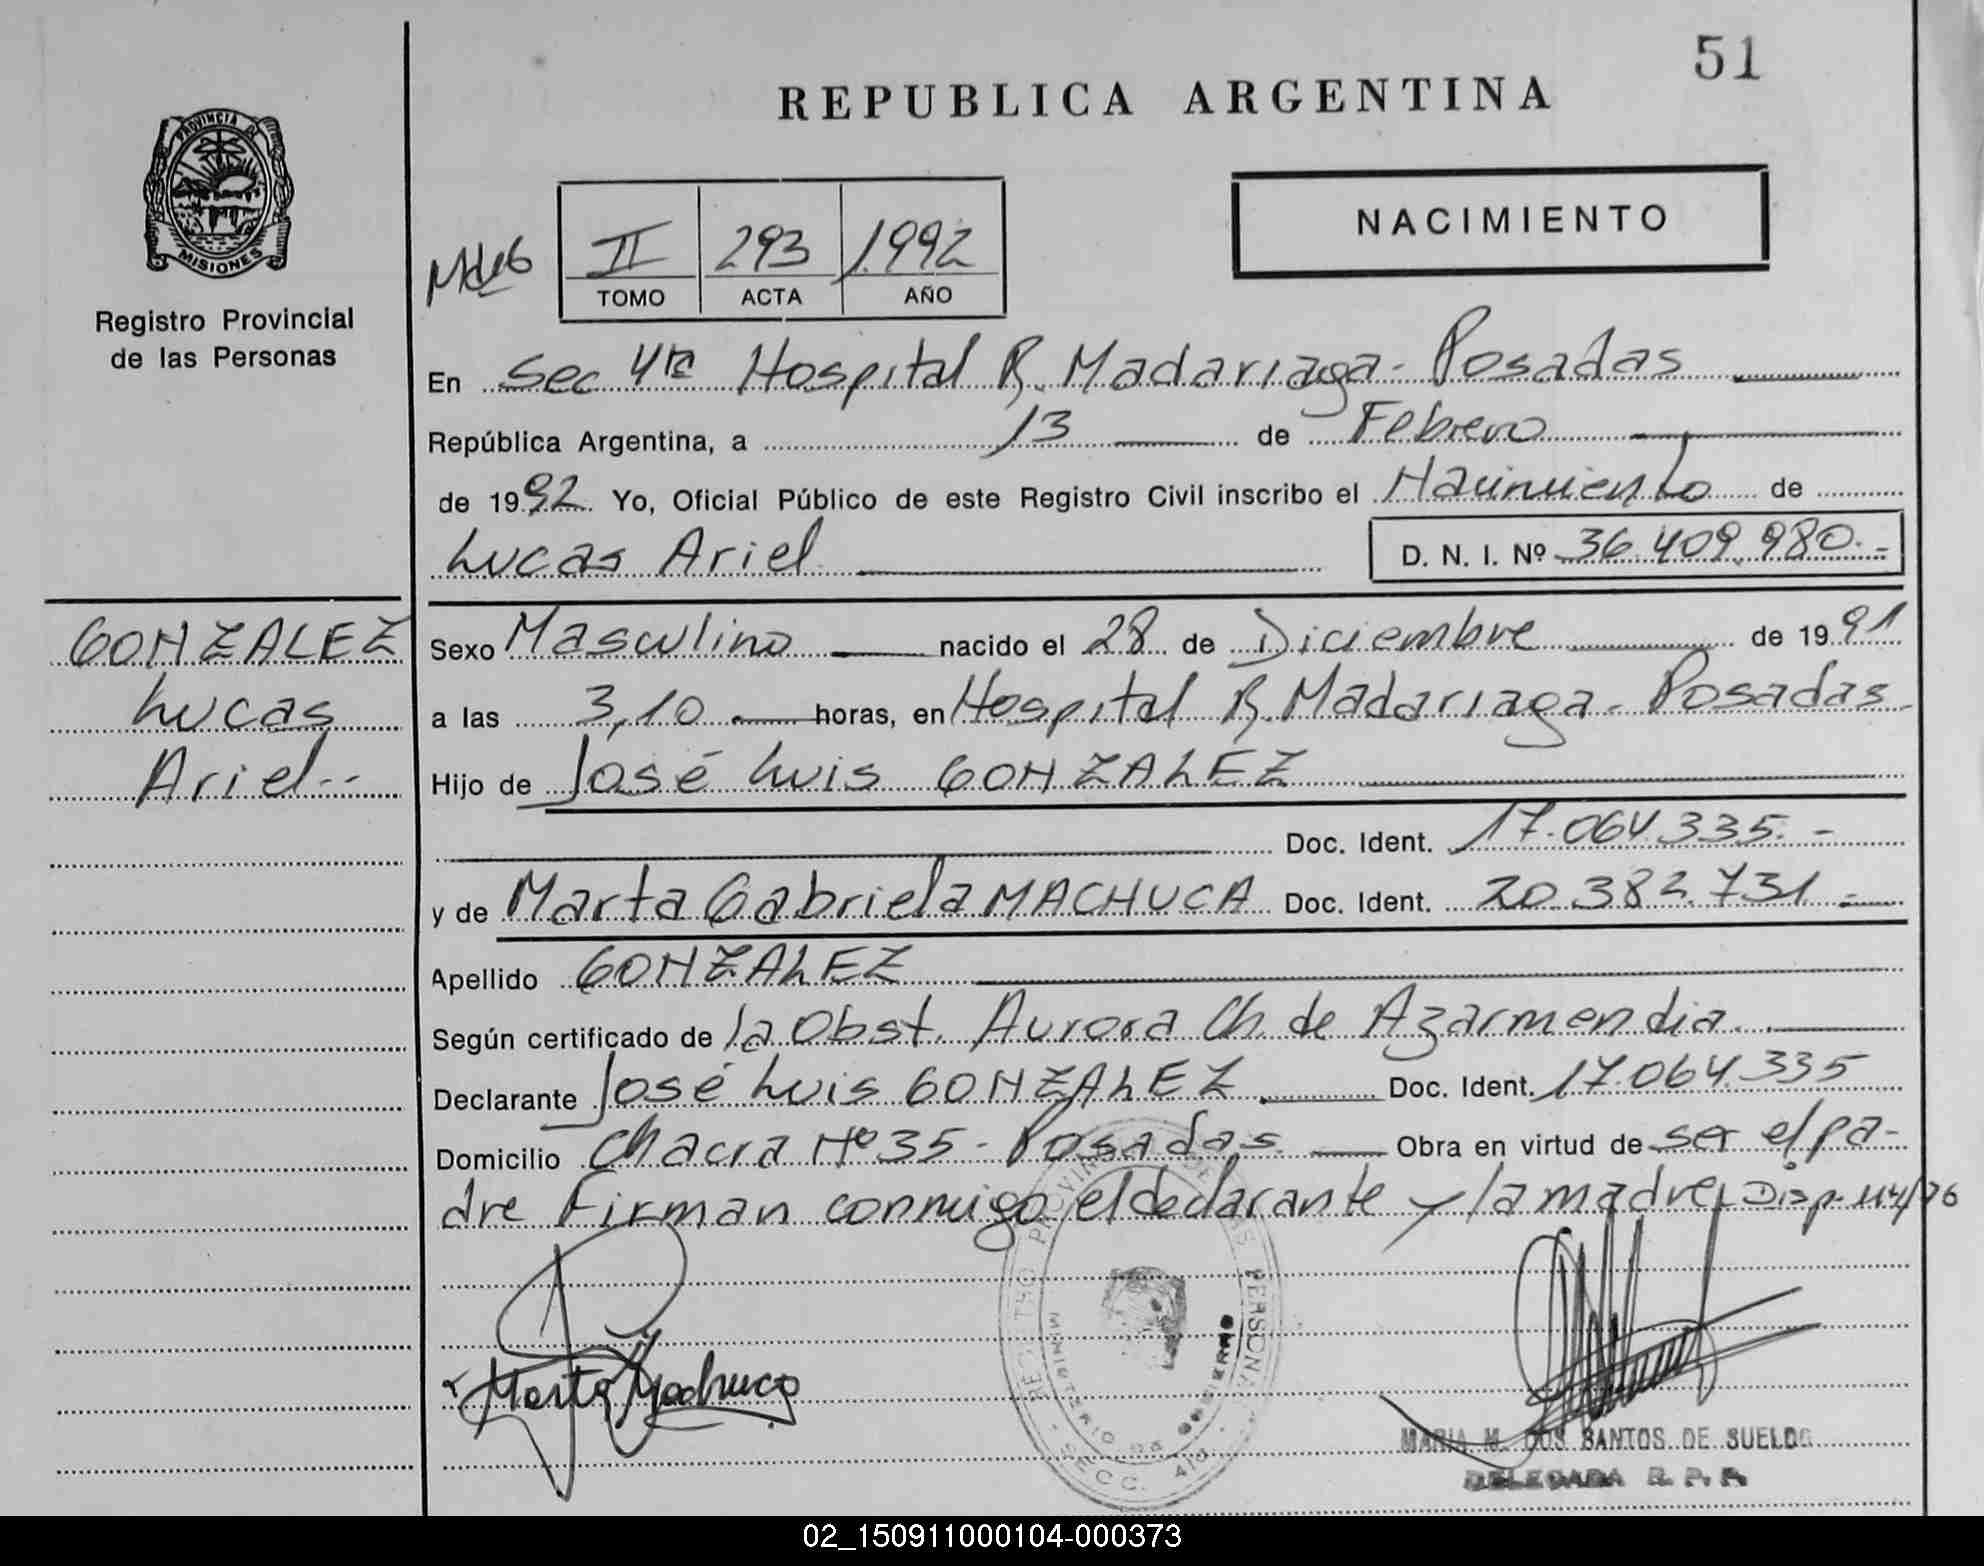 51
REPUBLICA ARGENTINA
PROVINCIA DE
MISIONES
Registro Provincial
de las Personas
II 293 1.992
TOMO ACTA AÑO
NACIMIENTO
En Sec 4ta Hospital R. Madariaga - Posadas
República Argentina, a 13 de Febrero
de 1992. Yo, Oficial Público de este Registro Civil inscribo el Nacimiento de
Lucas Ariel D. N. I. Nº 36.409.980.-
GONZALEZ
Lucas
Ariel--
Sexo Masculino nacido el 28 de Diciembre de 1991
a las 3,10 horas, en Hospital R. Madariaga - Posadas
Hijo de José Luis GONZALEZ
Doc. Ident. 17.064.335.-
y de Marta Gabriela MACHUCA Doc. Ident. 20.382.731.-
Apellido GONZALEZ
Según certificado de la Obst. Aurora Ch. de Azarmendia
Declarante José Luis GONZALEZ Doc. Ident. 17.064.335
Domicilio Chacra Nº 35 - Posadas Obra en virtud de ser el pa-
dre Firman conmigo el declarante y la madre, Disp. 114/76
REGISTRO PROVINCIAL DE LAS PERSONAS
MINISTERIO DE GOBIERNO
SECC. 4ta
Marta Machuca
MARIA M. DOS SANTOS DE SUELDO
DELEGADA R. P. P.
02_150911000104-000373